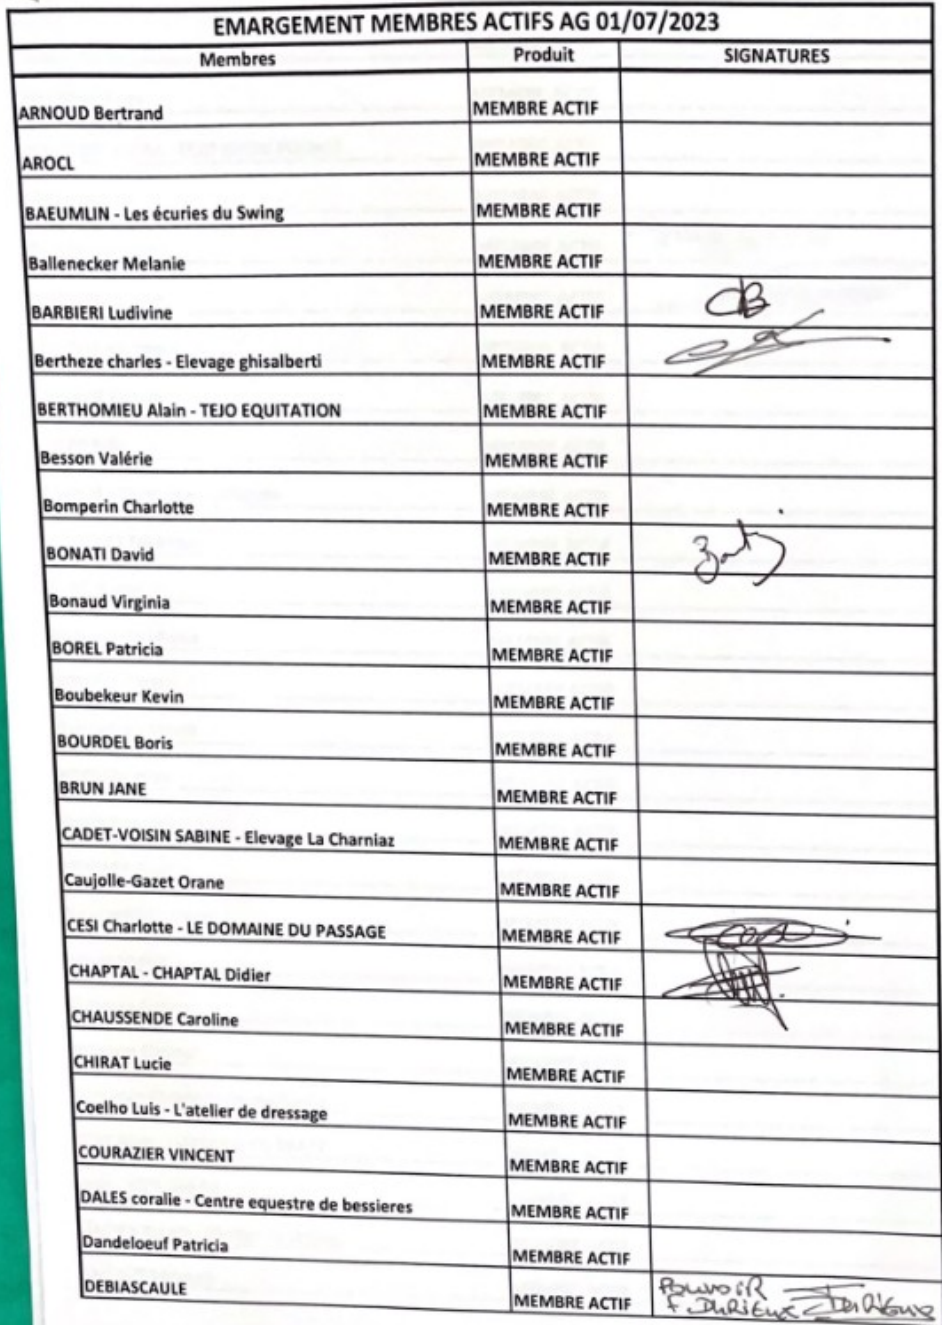 EMARGEMENT MEMBRES ACTIFS AG 01/07/2023
Membres Produit SIGNATURES
ARNOUD Bertrand MEMBRE ACTIF
AROCL MEMBRE ACTIF
BAEUMLIN - Les écuries du Swing MEMBRE ACTIF
Ballenecker Melanie MEMBRE ACTIF
BARBIERI Ludivine MEMBRE ACTIF
Bertheze charles - Elevage ghisalberti MEMBRE ACTIF
BERTHOMIEU Alain - TEJO EQUITATION MEMBRE ACTIF
Besson Valérie MEMBRE ACTIF
Bomperin Charlotte MEMBRE ACTIF
BONATI David MEMBRE ACTIF
Bonaud Virginia MEMBRE ACTIF
BOREL Patricia MEMBRE ACTIF
Boubekeur Kevin MEMBRE ACTIF
BOURDEL Boris MEMBRE ACTIF
BRUN JANE MEMBRE ACTIF
CADET-VOISIN SABINE - Elevage La Charniaz MEMBRE ACTIF
Caujolle-Gazet Orane MEMBRE ACTIF
CESI Charlotte - LE DOMAINE DU PASSAGE MEMBRE ACTIF
CHAPTAL - CHAPTAL Didier MEMBRE ACTIF
CHAUSSENDE Caroline MEMBRE ACTIF
CHIRAT Lucie MEMBRE ACTIF
Coelho Luis - L'atelier de dressage MEMBRE ACTIF
COURAZIER VINCENT MEMBRE ACTIF
DALES coralie - Centre equestre de bessieres MEMBRE ACTIF
Dandeloeuf Patricia MEMBRE ACTIF
DEBIASCAULE MEMBRE ACTIF POUVOIR
F. DURIEUX Durieux